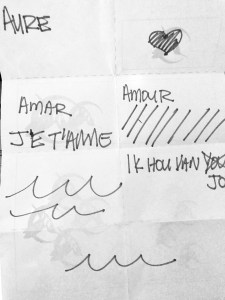 AURE
AMAR
AMOUR
JE T'AIME
IK HOU VAN
JO